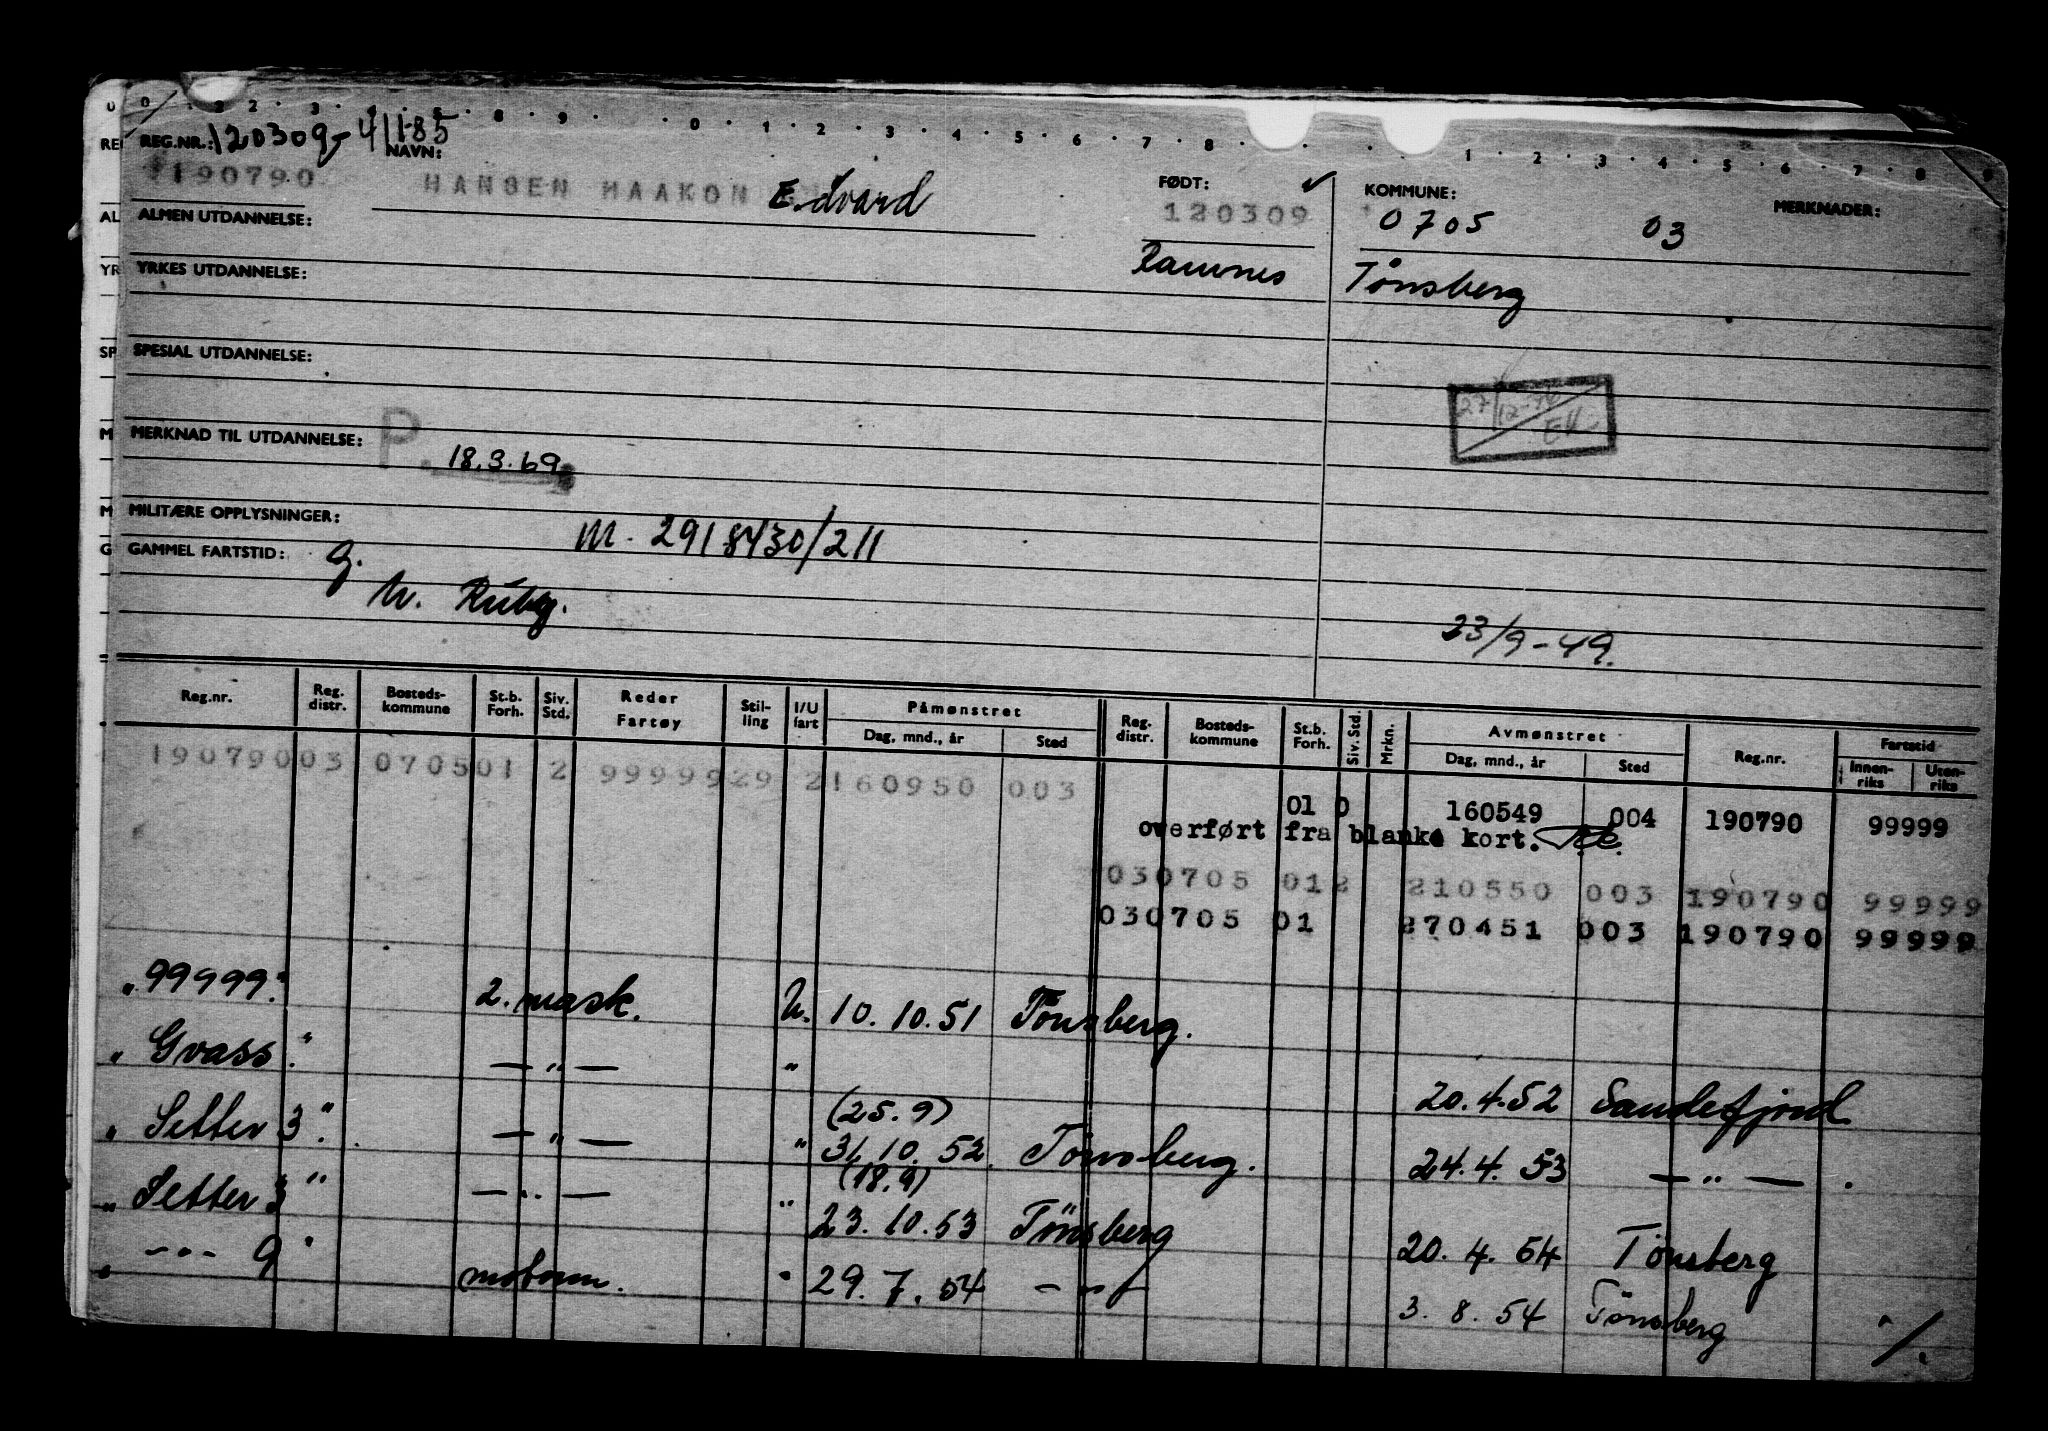 0 . 1 2 . 3 . 4 . 5 . 8 . 9 . 0 . 1 . 2 . 3 . 4 . 5 . 6 . 7 . 8 . . . 1 . 2 . 3 . 4 . 5 . 6 . 7 . 8 9
REG.NR.: 120309-41185 NAVN: FØDT: ✓ KOMMUNE: MERKNADER:
190790 HANSEN HAAKON Edvard 120309 0705 03
ALMEN UTDANNELSE: Ramnes Tönsberg
YRKES UTDANNELSE:
SPESIAL UTDANNELSE:
27/12-
MERKNAD TIL UTDANNELSE: P. 18.3.69
MILITÆRE OPPLYSNINGER: M. 2918430/211
GAMMEL FARTSTID: G.
23/9-49.
Reg.nr. Reg. distr. Bosteds-kommune St.b. Forh. Siv. Std. Reder Fartøy Stil-ling I/U fart Påmønstret Dag, mnd., år Sted Reg. distr. Bosteds-kommune St.b. Forh. Siv. Std. Mrkn. Avmønstret Dag, mnd., år Sted Reg.nr. Fartstid Innen-riks Uten-riks
190790 03 0705 01 2 99999 29 2 160950 003
01 0 160549 004 190790 99999
overført fra blanke kort.
030705 012 210550 003 190790 99999
030705 01 270451 003 190790 99999
„99999." 2. mask. U. 10.10.51 Tönsberg.
„Gvass." — „ — " 20.4.52 Sandefjord
(25.9)
„Setter 3". — „ — " 31.10.52. Tönsberg. 24.4.53 — „ — .
(18.9)
„Setter 3" — „ — " 23.10.53 Tönsberg 20.4.54 Tönsberg
" — " — 9" motorm. " 29.7.54 — " — 3.8.54 Tönsberg ./.